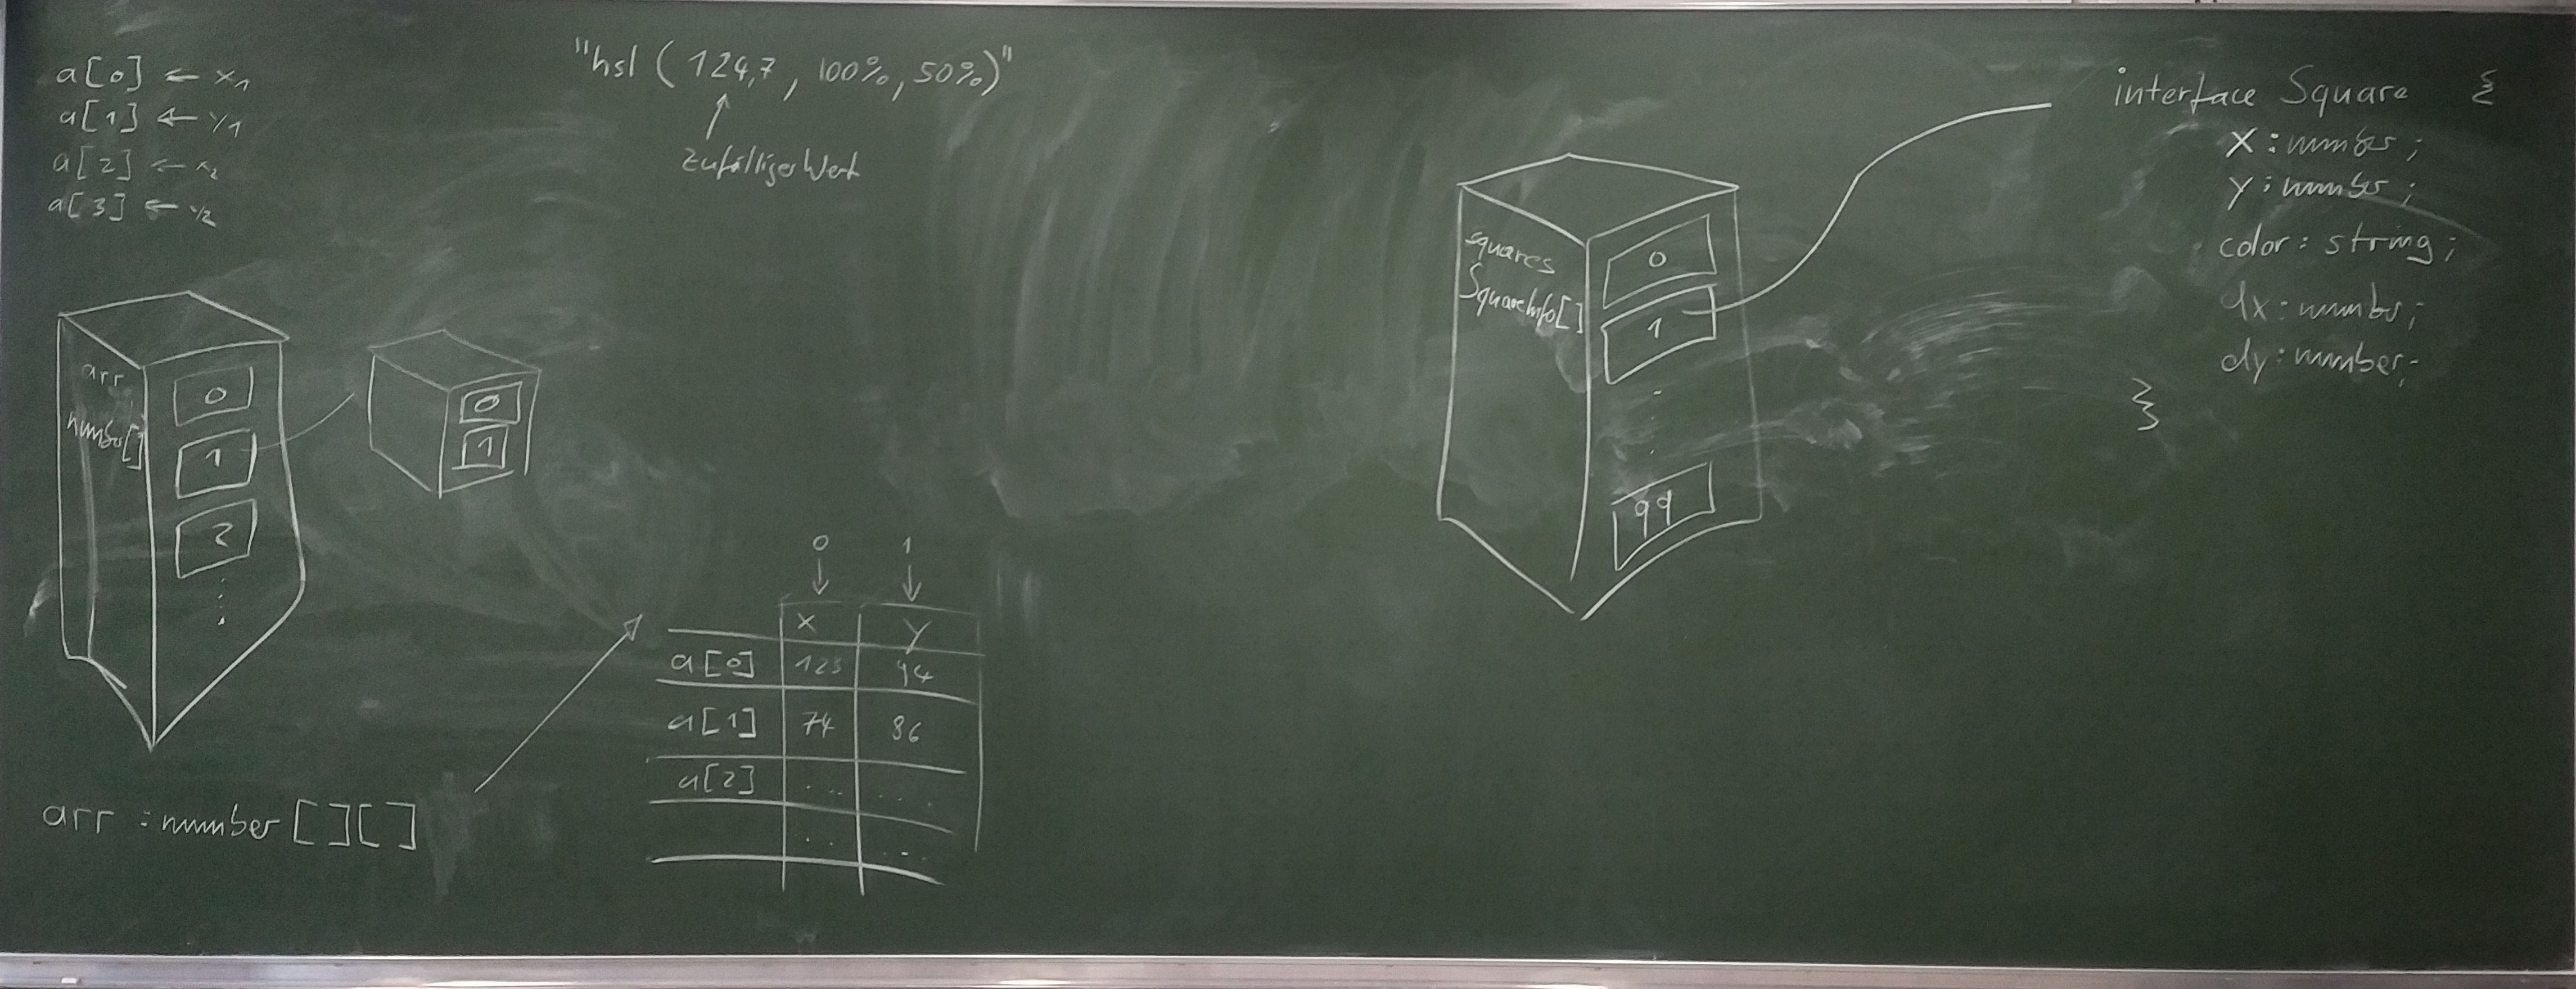 a[0] ← x1
a[1] ← y1
a[2] ← x2
a[3] ← y2
"hsl (124,7, 100%, 50%)"
Zufälliger Wert
arr
number[]
0
1
2
0
1
arr : number [][]
0 1
x y
a[0] 123 94
a[1] 74 86
a[2] . . . . . .
. . . . .
squares
SquareInfo[]
0
1
99
interface Square {
x : number ;
y : number ;
color : string ;
dx : number ;
dy : number ;
}